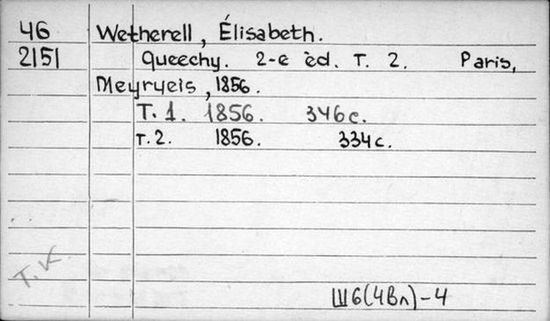 46 Wetherell, Élisabeth.
2151 Queechy. 2-e èd. T. 2. Paris,
Meyrueis, 1856.
T. 1. 1856. 346с.
т. 2. 1856. 334с.
Т. К
Ш6(4Вл)-4